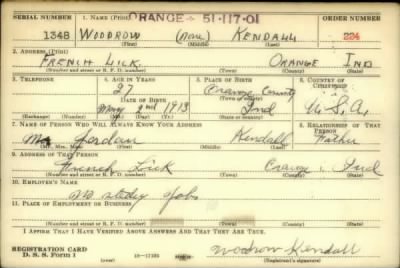 SERIAL NUMBER 1. NAME (Print) ORANGE - 51-117-01 ORDER NUMBER
1348 WOODROW (none) KENDALL 224
(First) (Middle) (Last)
2. ADDRESS (Print)
FRENCH LICK ORANGE IND
(Number and street or R. F. D. number) (Town) (County) (State)
3. TELEPHONE 4. AGE IN YEARS 5. PLACE OF BIRTH 6. COUNTRY OF CITIZENSHIP
27 Orange County
DATE OF BIRTH (Town or county)
May 2nd 1913 Ind U.S.A.
(Exchange) (Number) (Mo.) (Day) (Yr.) (State or country)
7. NAME OF PERSON WHO WILL ALWAYS KNOW YOUR ADDRESS 8. RELATIONSHIP OF THAT PERSON
Mr Jordan Kendall Father
(Mr., Mrs., Miss) (First) (Middle) (Last)
9. ADDRESS OF THAT PERSON
French Lick Orange, Ind
(Number and street or R. F. D. number) (Town) (County) (State)
10. EMPLOYER'S NAME
no stedy jobs
11. PLACE OF EMPLOYMENT OR BUSINESS
(Number and street or R. F. D. number) (Town) (County) (State)
I AFFIRM THAT I HAVE VERIFIED ABOVE ANSWERS AND THAT THEY ARE TRUE.
REGISTRATION CARD
D. S. S. Form 1 16-17105 Woodrow Kendall
(Registrant's signature)